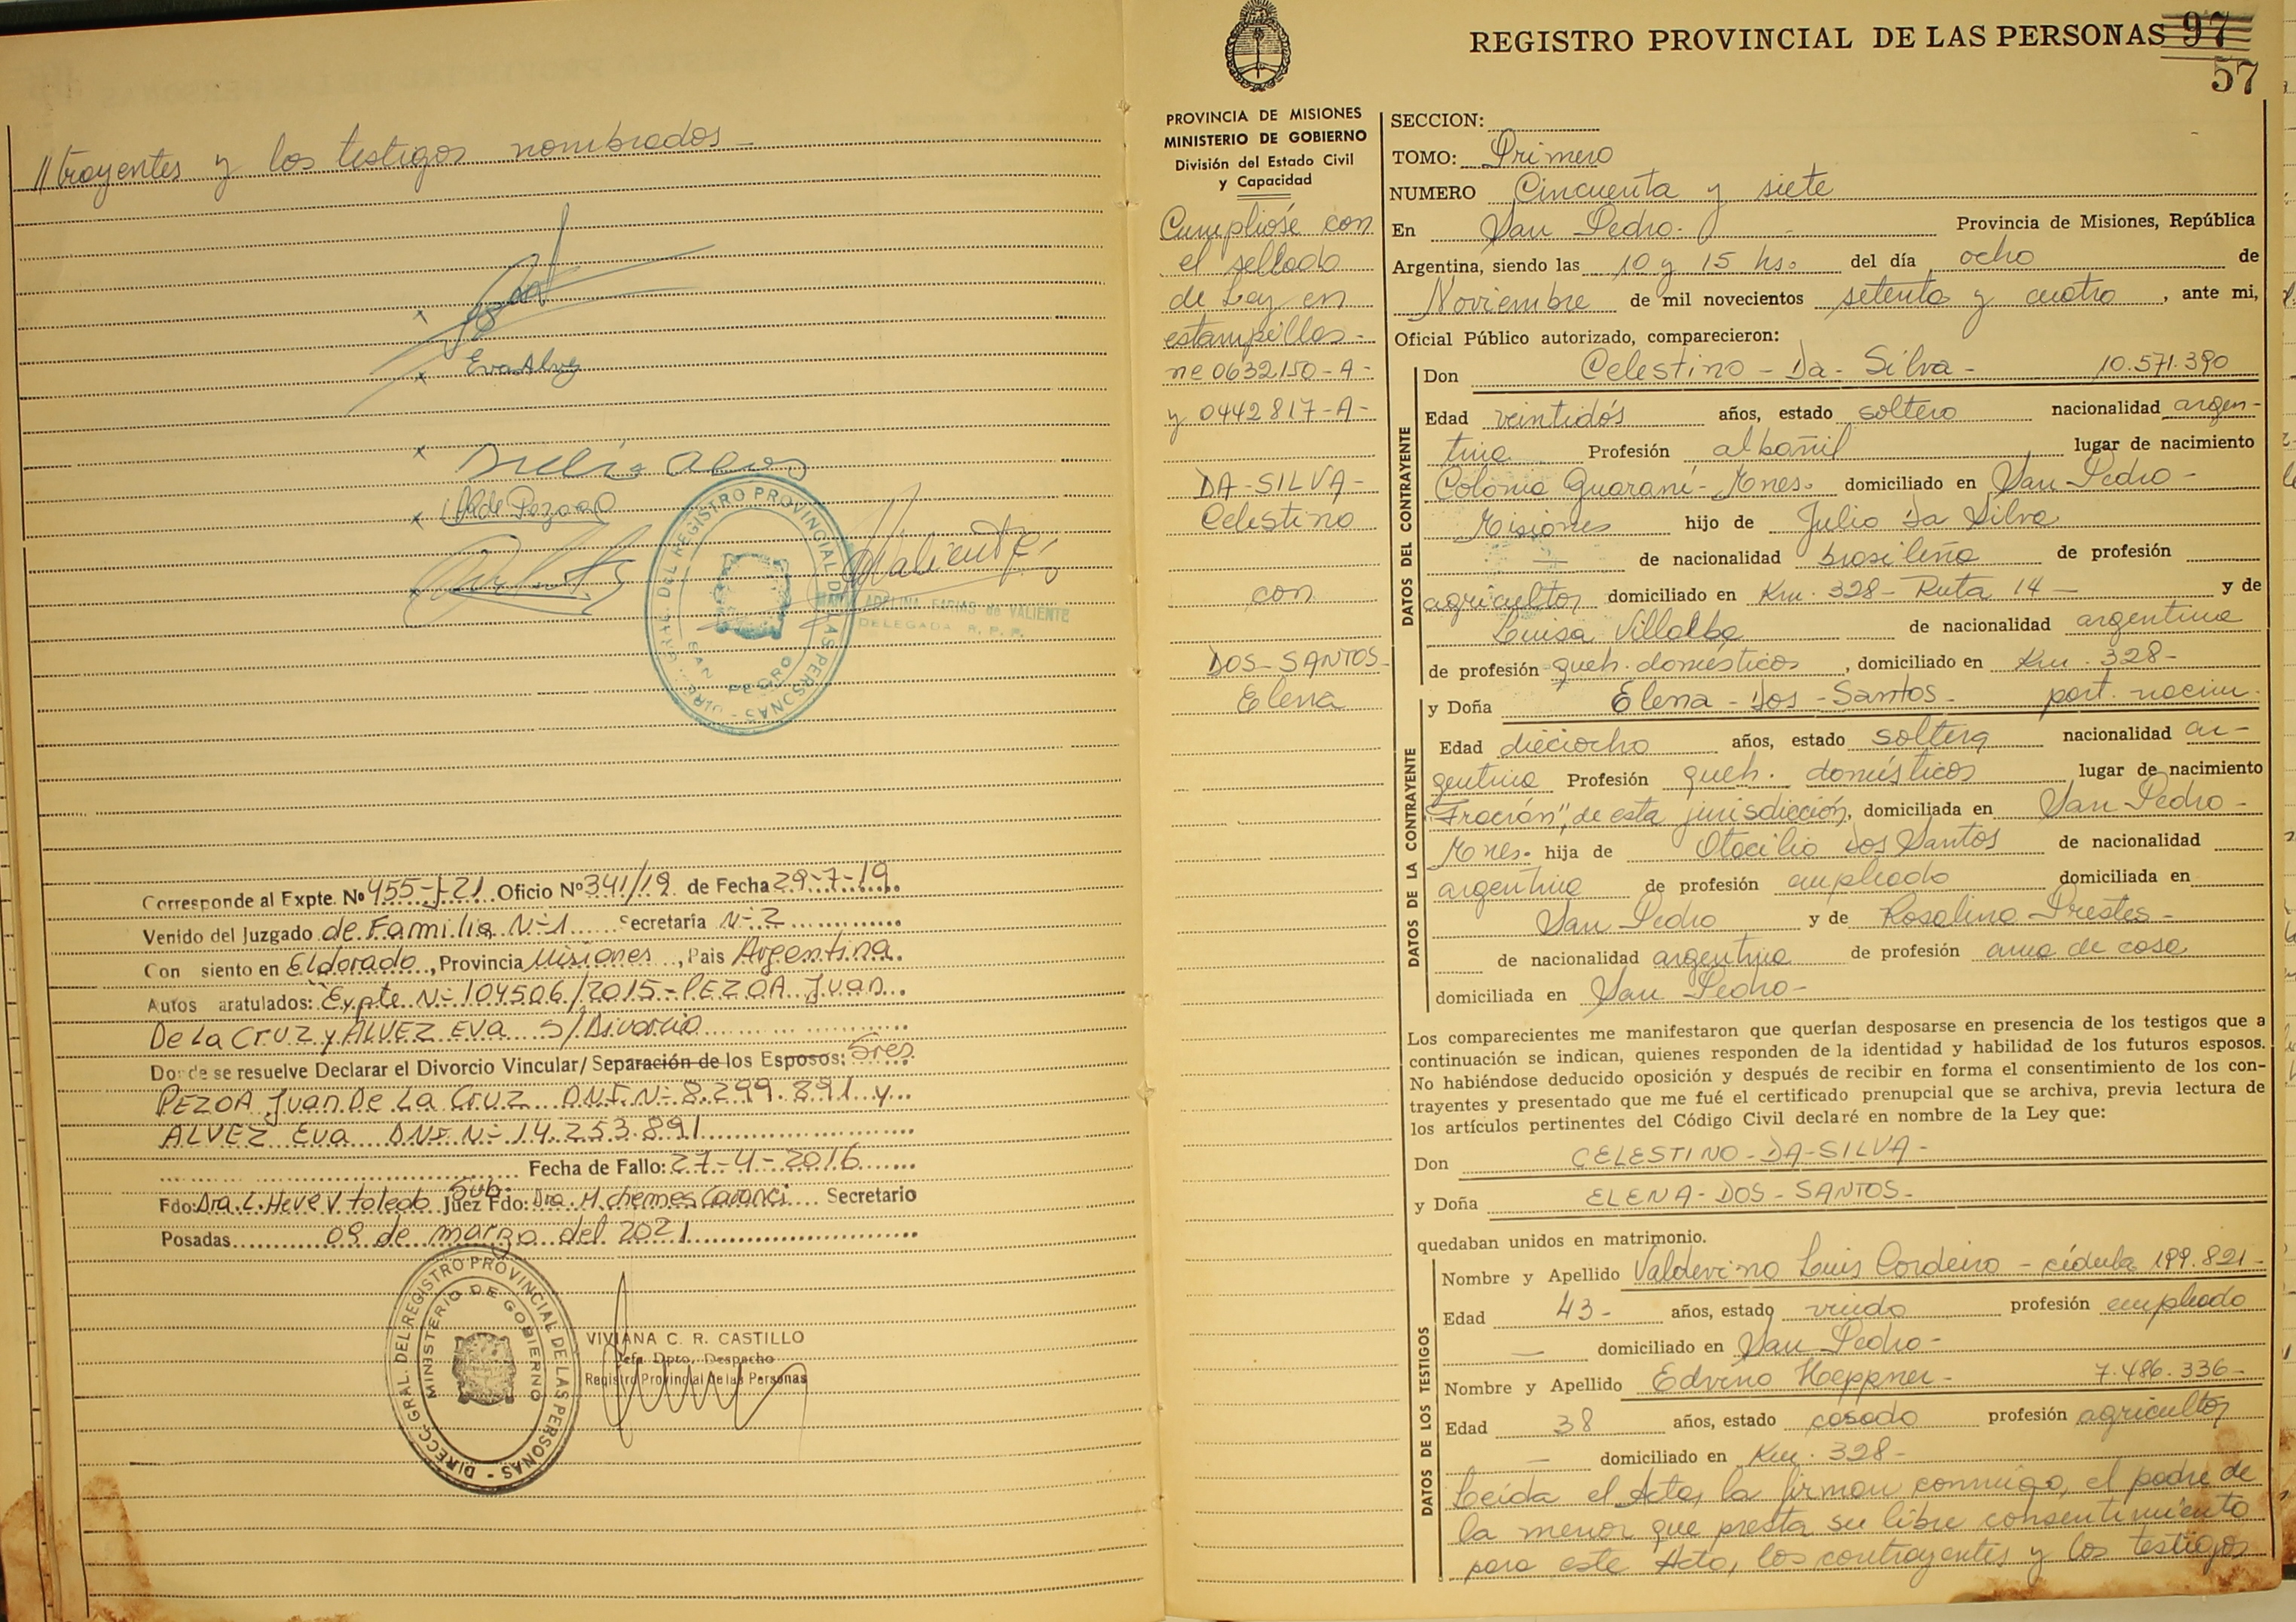 //trayentes y los testigos nombrados_
Eva Alvez
DIRECC. GRAL. DEL REGISTRO PROVINCIAL DE LAS PERSONAS
SAN PEDRO
MARIA ADELINA FARIAS de VALIENTE
DELEGADA R. P. P.
Corresponde al Expte. Nº 455-J-21 Oficio Nº 341/19 de Fecha 29-7-19
Venido del Juzgado de Familia Nº 1 Secretaría Nº 2
Con siento en Eldorado, Provincia Misiones, Pais Argentina
Autos aratulados: Expte Nº 104506/2015-PEZOA Juan
De La Cruz y ALVEZ EVA S/Divorcio
Donde se resuelve Declarar el Divorcio Vincular/ Separación de los Esposos: Sres
PEZOA Juan De La Cruz DNI Nº 8.299.891 y
ALVEZ Eva DNI Nº 14.253.891
Fecha de Fallo: 27-4-2016
Fdo: Dra. L. Heve V. toledo Sub. Juez Fdo: Dra. M. Secretario
Posadas 09 de marzo del 2021
DIRECC. GRAL. DEL REGISTRO PROVINCIAL DE LAS PERSONAS
MINISTERIO DE GOBIERNO
VIVIANA C. R. CASTILLO
Jefa Dpto. Despacho
Registro Provincial de las Personas
REGISTRO PROVINCIAL DE LAS PERSONAS 97
57
PROVINCIA DE MISIONES
MINISTERIO DE GOBIERNO
División del Estado Civil
y Capacidad
Cumplióse con
el sellado
de Ley en
estampillas-
nº 0632150-A-
y 0442817-A-
DA-SILVA-
Celestino
con
DOS-SANTOS-
Elena
SECCION:
TOMO: Primero
NUMERO Cincuenta y siete
En San Pedro. Provincia de Misiones, República
Argentina, siendo las 10 y 15 hs. del día ocho de
Noviembre de mil novecientos setenta y cuatro, ante mi,
Oficial Público autorizado, comparecieron:
DATOS DEL CONTRAYENTE
Don Celestino-Da-Silva- 10.571.390
Edad veintidós años, estado soltero nacionalidad argen-
tina Profesión albañil lugar de nacimiento
Colonia Guaraní-Mnes. domiciliado en San Pedro-
Misiones hijo de Julio Da Silva
— de nacionalidad brasileña de profesión
agricultor domiciliado en Km. 328-Ruta 14— y de
Luisa Villalba de nacionalidad argentina
de profesión queh. domésticos, domiciliado en Km. 328-
DATOS DE LA CONTRAYENTE
y Doña Elena-Dos-Santos- part. nacim.
Edad dieciocho años, estado soltera nacionalidad ar-
gentina Profesión queh. domésticos lugar de nacimiento
"Fración", de esta jurisdicción, domiciliada en San Pedro-
Mnes. hija de Otacilio Dos Santos de nacionalidad
argentina de profesión empleado domiciliada en
San Pedro y de Rosalina Prestes-
de nacionalidad argentina de profesión ama de casa
domiciliada en San Pedro-
Los comparecientes me manifestaron que querían desposarse en presencia de los testigos que a
continuación se indican, quienes responden de la identidad y habilidad de los futuros esposos.
No habiéndose deducido oposición y después de recibir en forma el consentimiento de los con-
trayentes y presentado que me fué el certificado prenupcial que se archiva, previa lectura de
los artículos pertinentes del Código Civil declaré en nombre de la Ley que:
Don CELESTINO-DA-SILVA-
y Doña ELENA-DOS-SANTOS-
quedaban unidos en matrimonio.
DATOS DE LOS TESTIGOS
Nombre y Apellido Valdevino Luis Cordeiro - cédula 199.821-
Edad 43- años, estado viudo profesión empleado
— domiciliado en San Pedro-
Nombre y Apellido Edvino Heppner- 7.486.336-
Edad 38 años, estado casado profesión agricultor
— domiciliado en Km. 328-
Leída el Acta, la firman conmigo, el padre de
la menor que presta su libre consentimiento
para este Acto, los contrayentes y los testigos